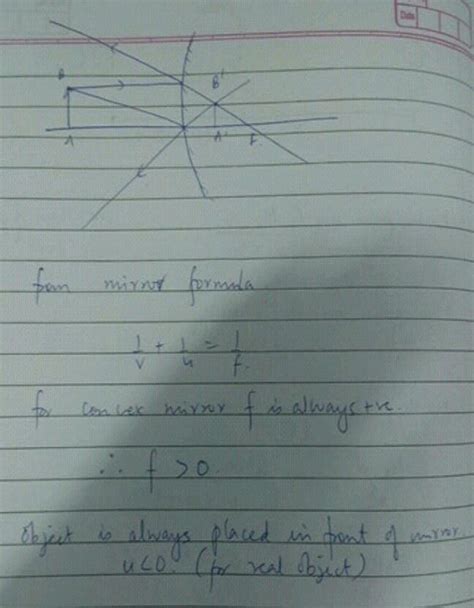 Date
B
B'
A
A'
F
from mirror formula
1/v + 1/u = 1/f.
for convex mirror f is always +ve.
∴ f > 0.
Object is always placed in front of mirror.
u<0. (for real object)